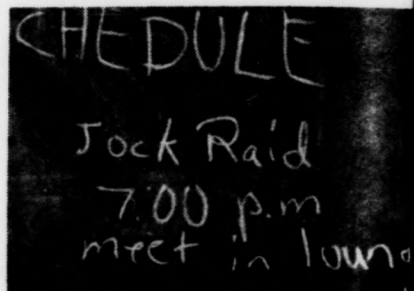 CHEDULE
Jock Raid
7:00 p.m
meet in loun